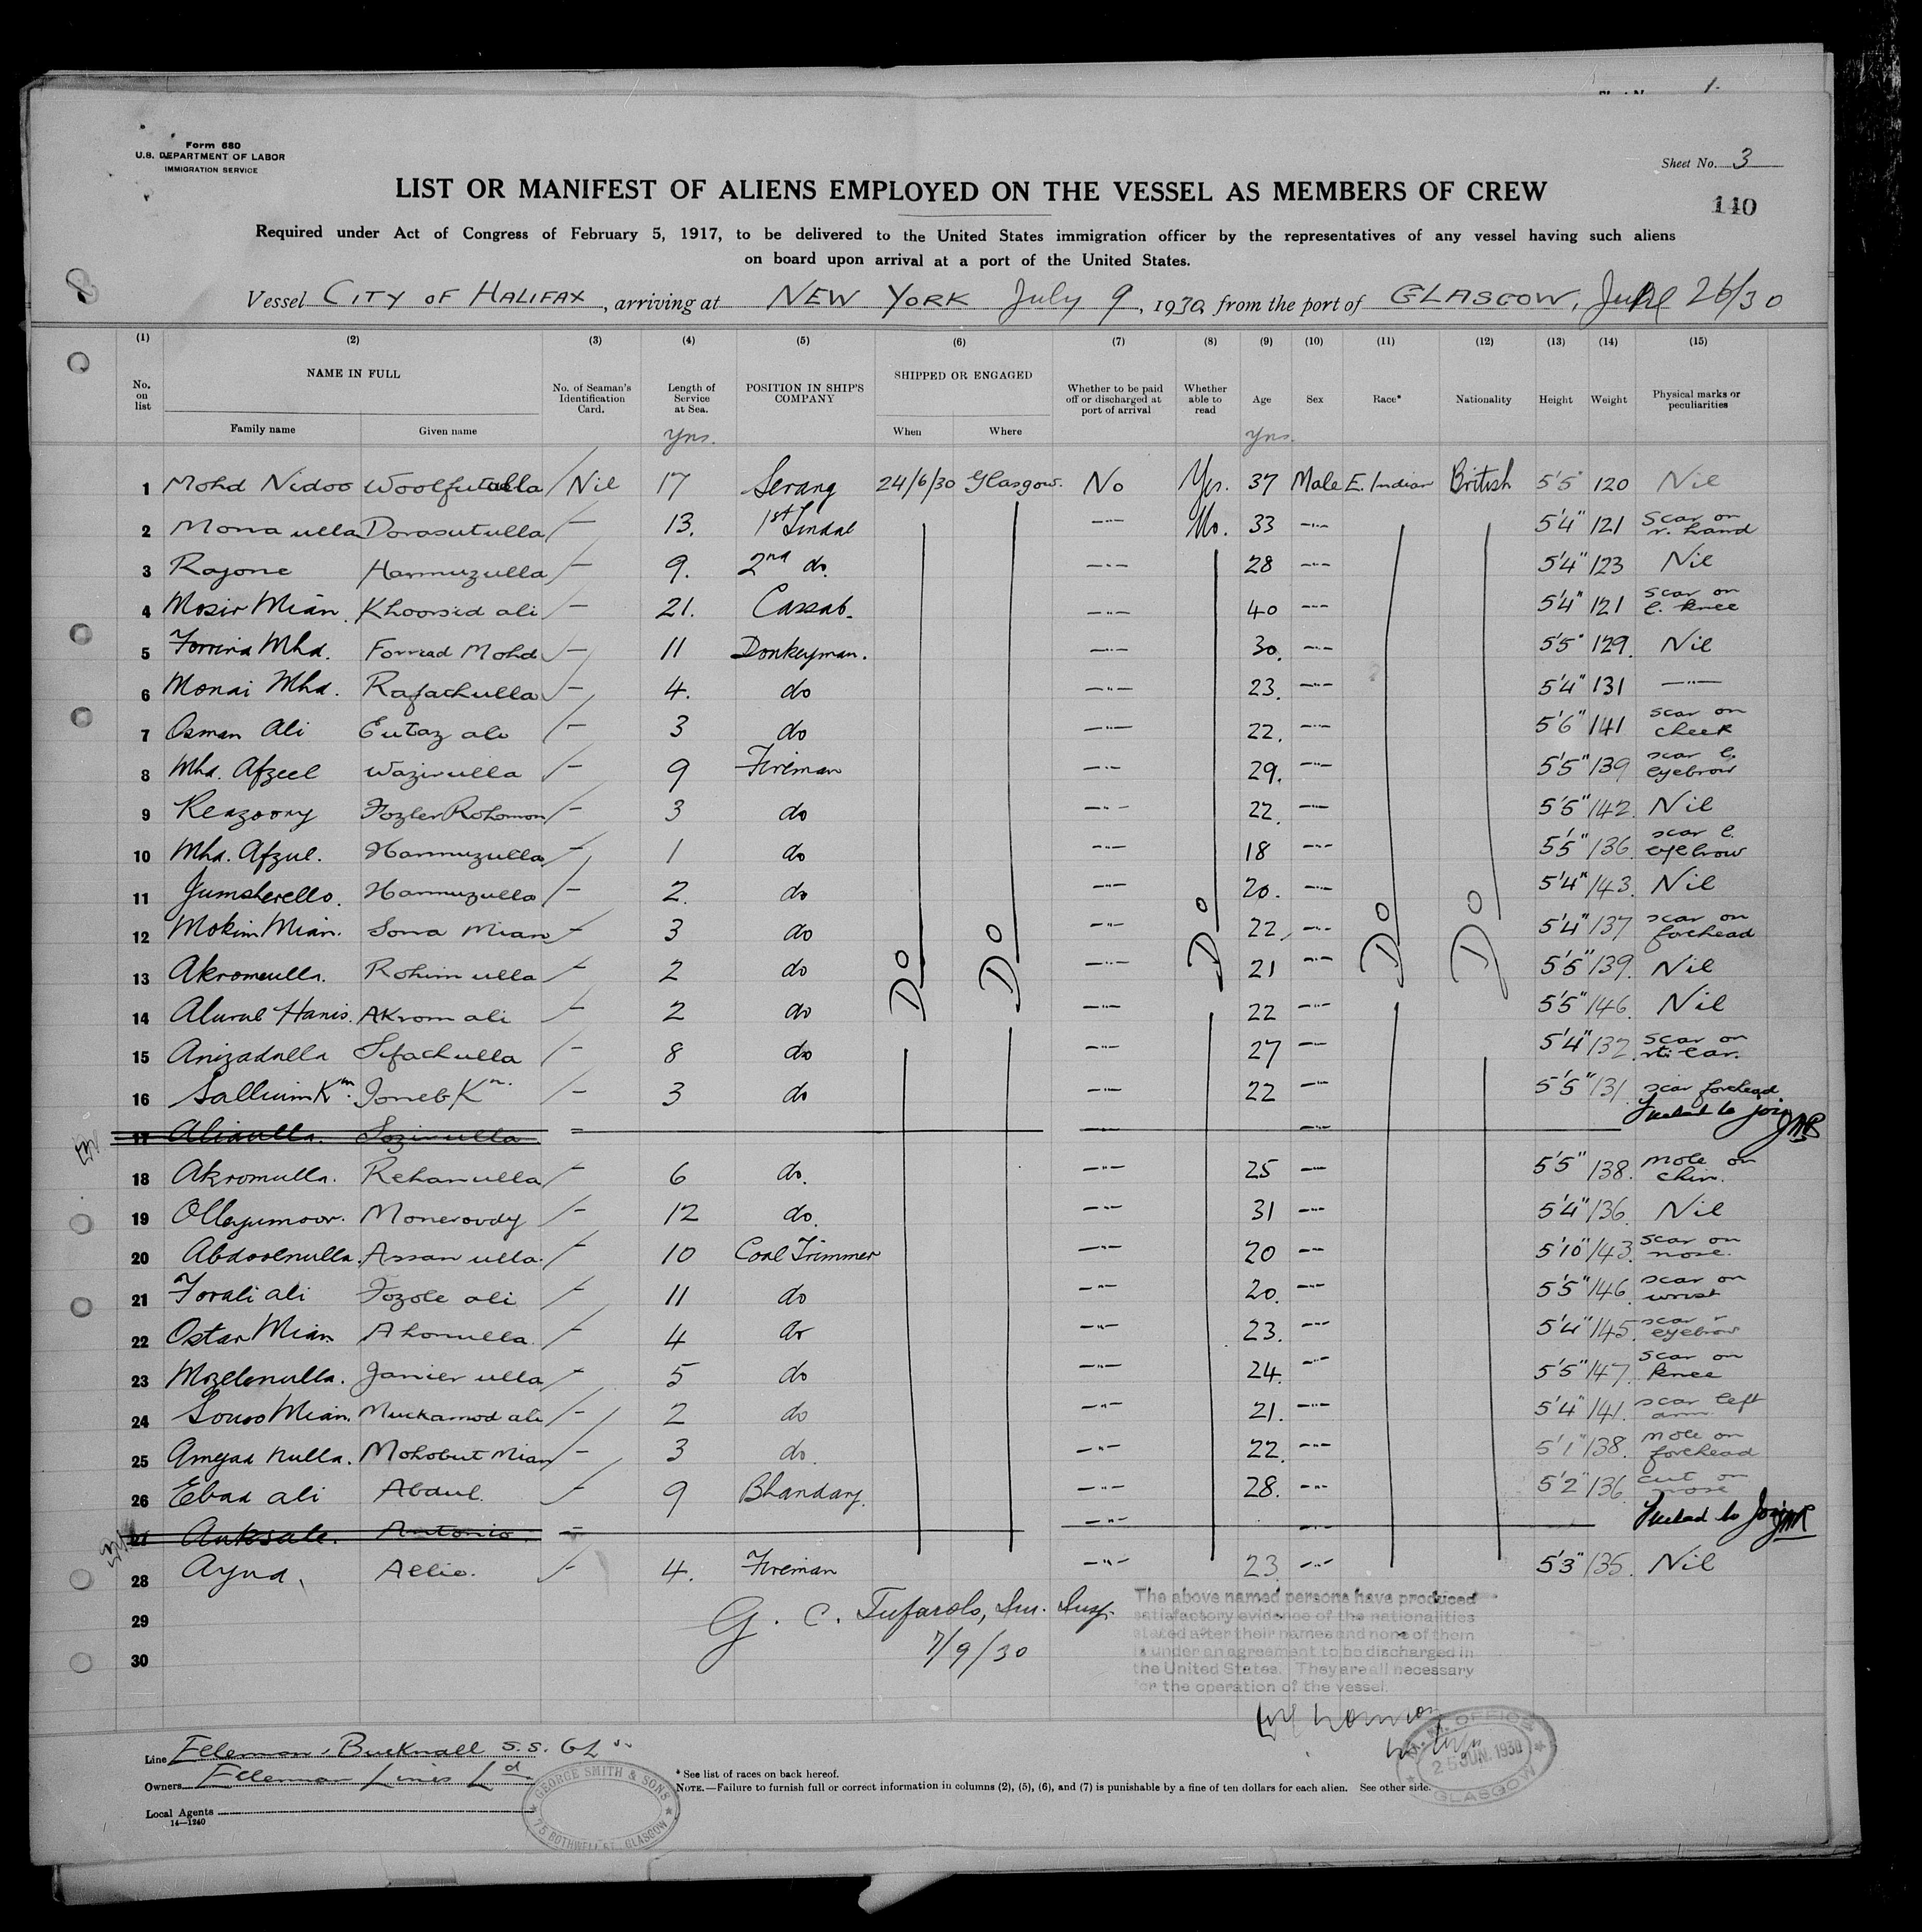 1.
Form 680
U.S. DEPARTMENT OF LABOR
IMMIGRATION SERVICE
Sheet No. 3
LIST OR MANIFEST OF ALIENS EMPLOYED ON THE VESSEL AS MEMBERS OF CREW
110
Required under Act of Congress of February 5, 1917, to be delivered to the United States immigration officer by the representatives of any vessel having such aliens
on board upon arrival at a port of the United States.
Vessel CITY OF HALIFAX, arriving at NEW YORK July 9, 1930, from the port of GLASGOW, June 26/30
(1) (2) (3) (4) (5) (6) (7) (8) (9) (10) (11) (12) (13) (14) (15)
No. on list NAME IN FULL Family name Given name No. of Seaman's Identification Card. Length of Service at Sea. POSITION IN SHIP'S COMPANY SHIPPED OR ENGAGED When Where Whether to be paid off or discharged at port of arrival Whether able to read Age Sex Race* Nationality Height Weight Physical marks or peculiarities
yrs. yrs.
1 Mohd Nidoo Woolfutulla / Nil 17 Serang 24/6/30 Glasgow. No Yes. 37 Male E. Indian British 5'5" 120 Nil
2 Mona ulla Dorasutulla / — 13. 1st Tindal —"— No. 33 —"— 5'4" 121 scar on r. hand
3 Rajone Hammuzulla / — 9. 2nd do. —"— 28 —"— 5'4" 123 Nil
4 Mosir Mian. Khoorsid ali / — 21. Cassab. —"— 40 —"— 5'4" 121 scar on l. knee
5 Mhd. Mohd / — 11 Donkeyman. —"— 30. —"— 5'5" 129. Nil
6 Monai Mhd. Rafachulla / — 4. do —"— 23. —"— 5'4" 131 —"—
7 Osman Ali Eutaz ali / — 3 do —"— 22. —"— 5'6" 141 scar on cheek
8 Mhd. Afzeel Wazirulla / — 9 Fireman —"— 29. —"— 5'5" 139 scar l. eyebrow
9 Fozler Rohomon / — 3 do —"— 22. —"— 5'5" 142. Nil
10 Mhd. Afzul. Hammuzulla / — 1 do —"— 18 —"— 5'5" 136. scar l. eyebrow
11 Jumsherello. Hammuzulla / — 2. do —"— 20. —"— 5'4" 143. Nil
12 Mokim Mian. Sona Mian / — 3 do Do Do —"— Do 22. —"— Do Do 5'4" 137 scar on forehead
13 Akromeulla. Rohim ulla / — 2 do —"— 21 —"— 5'5" 139. Nil
14 Hanis. Akrom ali / — 2 do —"— 22 —"— 5'5" 146. Nil
15 Anizadulla Sifachulla / — 8 do —"— 27 —"— 5'4" 132. scar on rt. ear.
16 / — 3 do —"— 22 —"— 5'5" 131. scar forehead
17 Sozirulla = —"— —"— Failed to join
18 Akromulla. Rehanulla / — 6 do. —"— 25 —"— 5'5" 138. mole on chin.
19 / — 12 do. —"— 31 —"— 5'4" 136. Nil
20 Abdoolnulla. Assan ulla. / — 10 Coal Trimmer —"— 20 —"— 5'10" 143. scar on nose.
21 Forali ali Fozole ali / — 11 do —"— 20. —"— 5'5" 146. scar on wrist
22 Ostar Mian Ahonulla. / — 4 do —"— 23. —"— 5'4" 145. scar r eyebrow
23 Janier ulla / — 5 do —"— 24. —"— 5'5" 147. scar on knee
24 Mian. Muckamod ali / — 2 do —"— 21. —"— 5'4" 141. scar left arm.
25 Amejad nulla. Mohobut Mian / — 3 do. —"— 22. —"— 5'1" 138. mole on forehead
26 Ebad ali Abdul. / — 9 Bhandary. —"— 28. —"— 5'2" 136. cut on nose
27 Antonio. = —"— —"— Failed to join
28 Ayna, Allie. / — 4. Fireman —"— 23. —"— 5'3" 135. Nil
29 G. C. Tufarolo, Im. Insp.
30 7/9/30
The above named persons have produced
satisfactory evidence of the nationalities
stated after their names and none of them
is under an agreement to be discharged in
the United States. They are all necessary
for the operation of the vessel.
Line Ellerman & Bucknall S.S. Co Ld
Owners Ellerman Lines Ld
Local Agents
14—1240
GEORGE SMITH & SONS
75 BOTHWELL ST. GLASGOW
* See list of races on back hereof.
NOTE.—Failure to furnish full or correct information in columns (2), (5), (6), and (7) is punishable by a fine of ten dollars for each alien. See other side.
M. M. OFFICE
25 JUN. 1930
GLASGOW